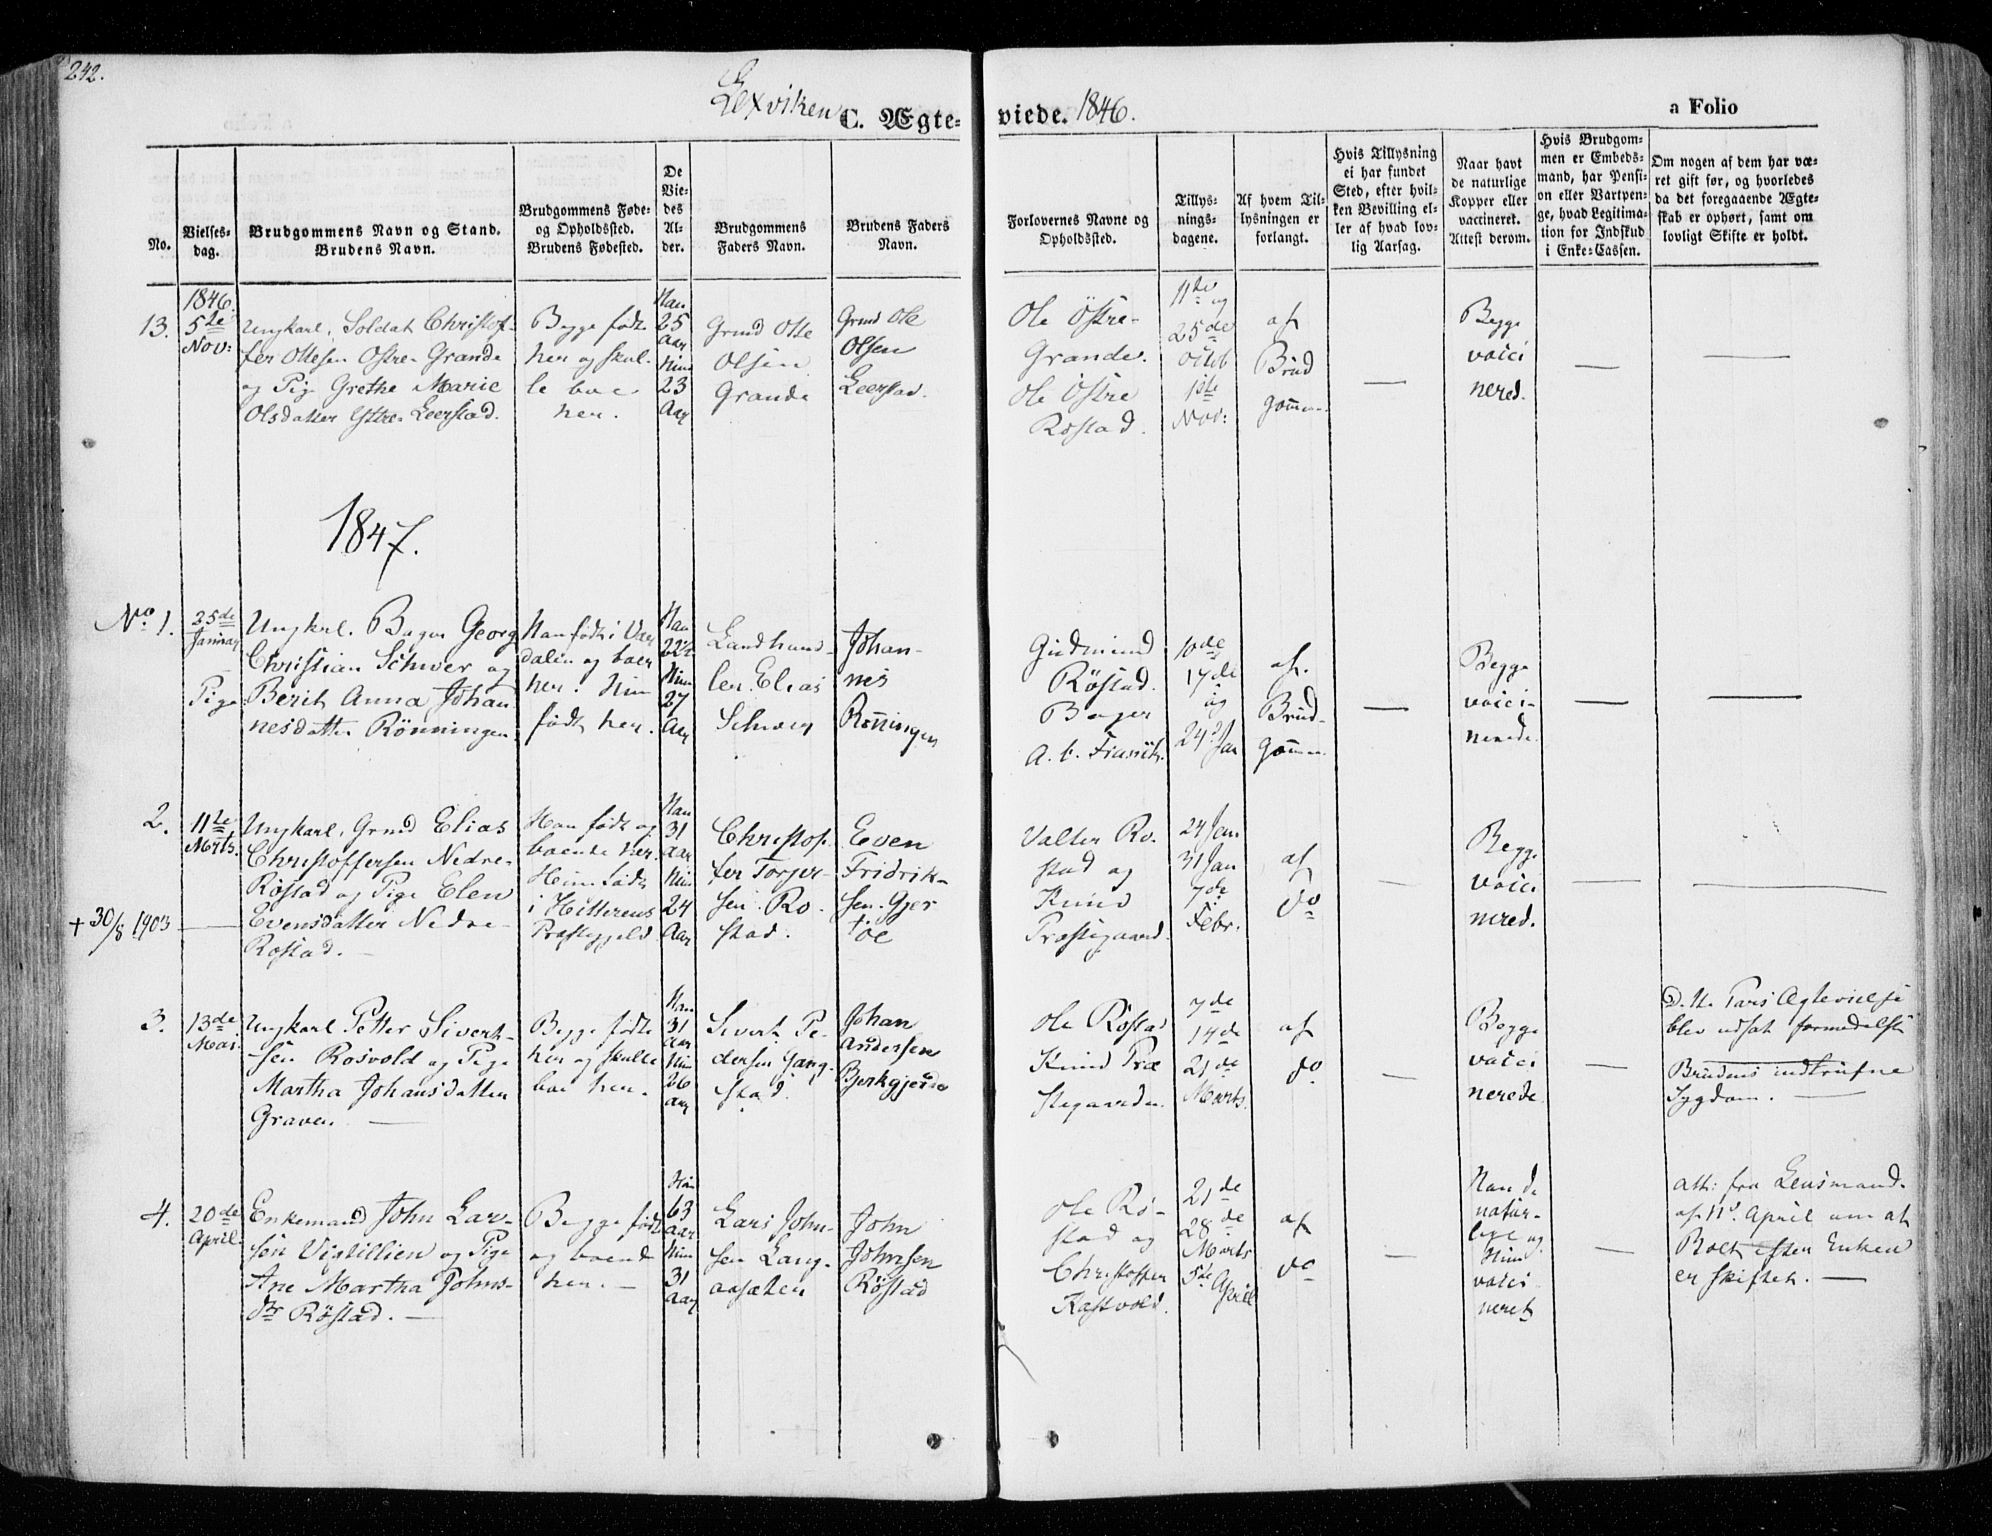 242.
Lexviken
C. Ægte-
viede. 1846.
a Folio
No.
Vielses-
dag.
Brudgommens Navn og Stand.
Brudens Navn.
Brudgommens Føde-
og Opholdssted.
Brudens Fødested.
De
Vie-
des
Al-
der.
Brudgommens
Faders Navn.
Brudens Faders
Navn.
Forlovernes Navne og
Opholdssted.
Tillys-
nings-
dagene.
Af hvem Til-
lysningen er
forlangt.
Hvis Tillysning
ei har fundet
Sted, efter hvil-
ken Bevilling el-
ler af hvad lov-
lig Aarsag.
Naar havt
de naturlige
Kopper eller
vaccineret.
Attest derom.
Hvis Brudgom-
men er Embeds-
mand, har Pensi-
on eller Vartpen-
ge, hvad Legitima-
tion for Indskud
i Enke-Cassen.
Om nogen af dem har væ-
ret gift før, og hvorledes
da det foregaaende Ægte-
skab er ophørt, samt om
lovligt Skifte er holdt.
13.
1846
5te
Nov:
Ungkarl. Soldat Christof-
fer Ottesen Østre Grande
og Pige Grethe Marie
Olsdatter Ystre Leerstad.
Begge født
her og skul-
le boe
her.
Han
25
Aar
Hun
23
Aar
Grmd Otte
Olsen
Grande
Grmd Ole
Olsen
Leerstad.
Ole Östre-
Grande.
Ole Östre
Røstad.
11te og
25de
Octob
1ste
Nov:
af
Brud
gommen
—
Begge
vacci
nered.
—
—
1847.
No 1.
25de
Januar
Ungkarl. Bager Georg
Christian Schiver og
Pige Berit Anna Johan
nesdatter Rönningen
Han født i Vær
dalen og boer
her. Hun
født her.
Han
22½
Hun
27
Aar
Landhand-
ler Elias
Schiver
Johan-
nes
Rønningen
Gudmund
Røstad.
Bager
A. C.
10de
17de
og
24de Jan
af
Brud-
gommen
—
Begge
vacci-
nerede
—
—
2.
11te
Marts.
Ungkarl, Grmd Elias
Christoffersen Nedre-
Røstad og Pige Elen
Evensdatter Nedre-
Røstad. —
+ 30/8 1903
Han født og
boende her.
Hun født
i Hitterens
Præstegjeld
Han
31
Aar
Hun
24
Aar
Christof-
fer Torger-
sen Ro-
stad.
Even
Fridrik-
sen Gjer
töe
Valter Ro-
stad og
Knud
Præstegaard.
24 Jan
31 Jan
7de
Febr.
af
do
—
Begge
vacci
nered.
—
—
3.
13de
Mai.
Ungkarl Petter Sivert-
sen Rosvold og Pige
Martha Johansdatter
Graven. —
Begge født
her og skulle
boe her.
Han
31
Aar
Hun
26
Aar
Sivert Pe-
dersen Gang-
stad.
Johan
Andersen
Bjerkgjerdo
Ole Röstad
Knud Præ
stegaarden
7de
14de
21de
Marts.
af
do
—
Begge
vacci
nerede
—
D. N. Pars Ægtevielse
blev udsat formedelst
Brudens indtrufne
Sygdom. —
4.
20de
April.
Enkemand John Lar-
sön Vigtillien og Pige
Ane Martha Johns-
dr Röstad. —
Begge født
og boende
her. —
Han
63
Aar
Hun
31
Aar
Lars John-
sen Lang-
aasæten
John
Johnsen
Röstad
Ole Rø-
stad og
Christopher
21de
28de
Marts
5te April
af
do
—
Han de
natur-
lige og
Hun
vacci
neret
—
att: fra Lensmand.
af 11te April om at
Boet efter Enken
er skiftet. —